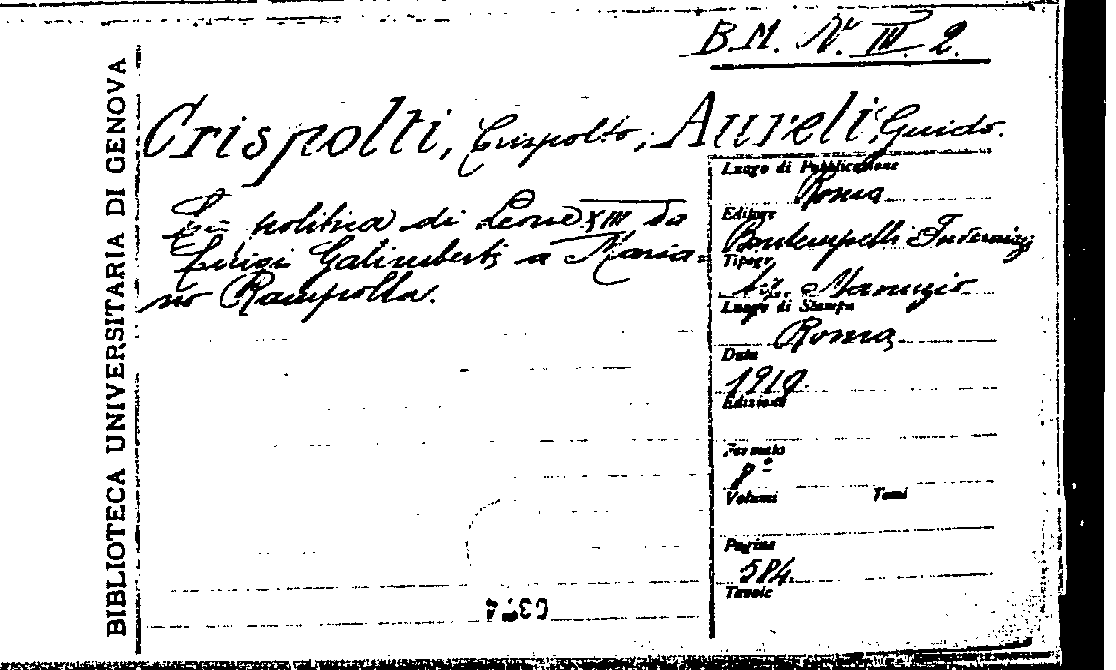 BIBLIOTECA UNIVERSITARIA DI GENOVA
B.M. N. III. 2.
Crispolti, Crispolto; Aureli Guido.
La politica di Leone XIII da
Luigi Galimberti a Maria=
no Rampolla.
Luogo di Pubblicazione
Roma
Editore
Bontempelli Invernizzi
Tipogr.
Manuzio
Luogo di Stampa
Roma
Data
Edizione
Formato
8°
Volumi Tomi
Pagine
584.
Tavole